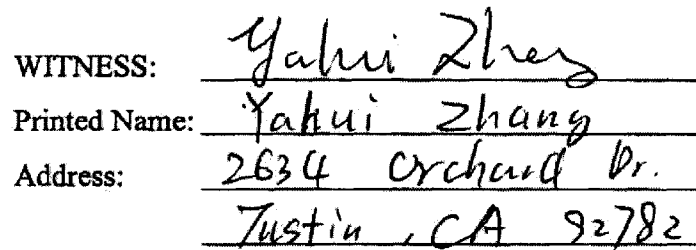 WITNESS: Yahui Zhang
Printed Name: Yahui Zhang
Address: 2634 Orchard Dr.
Tustin, CA 92782